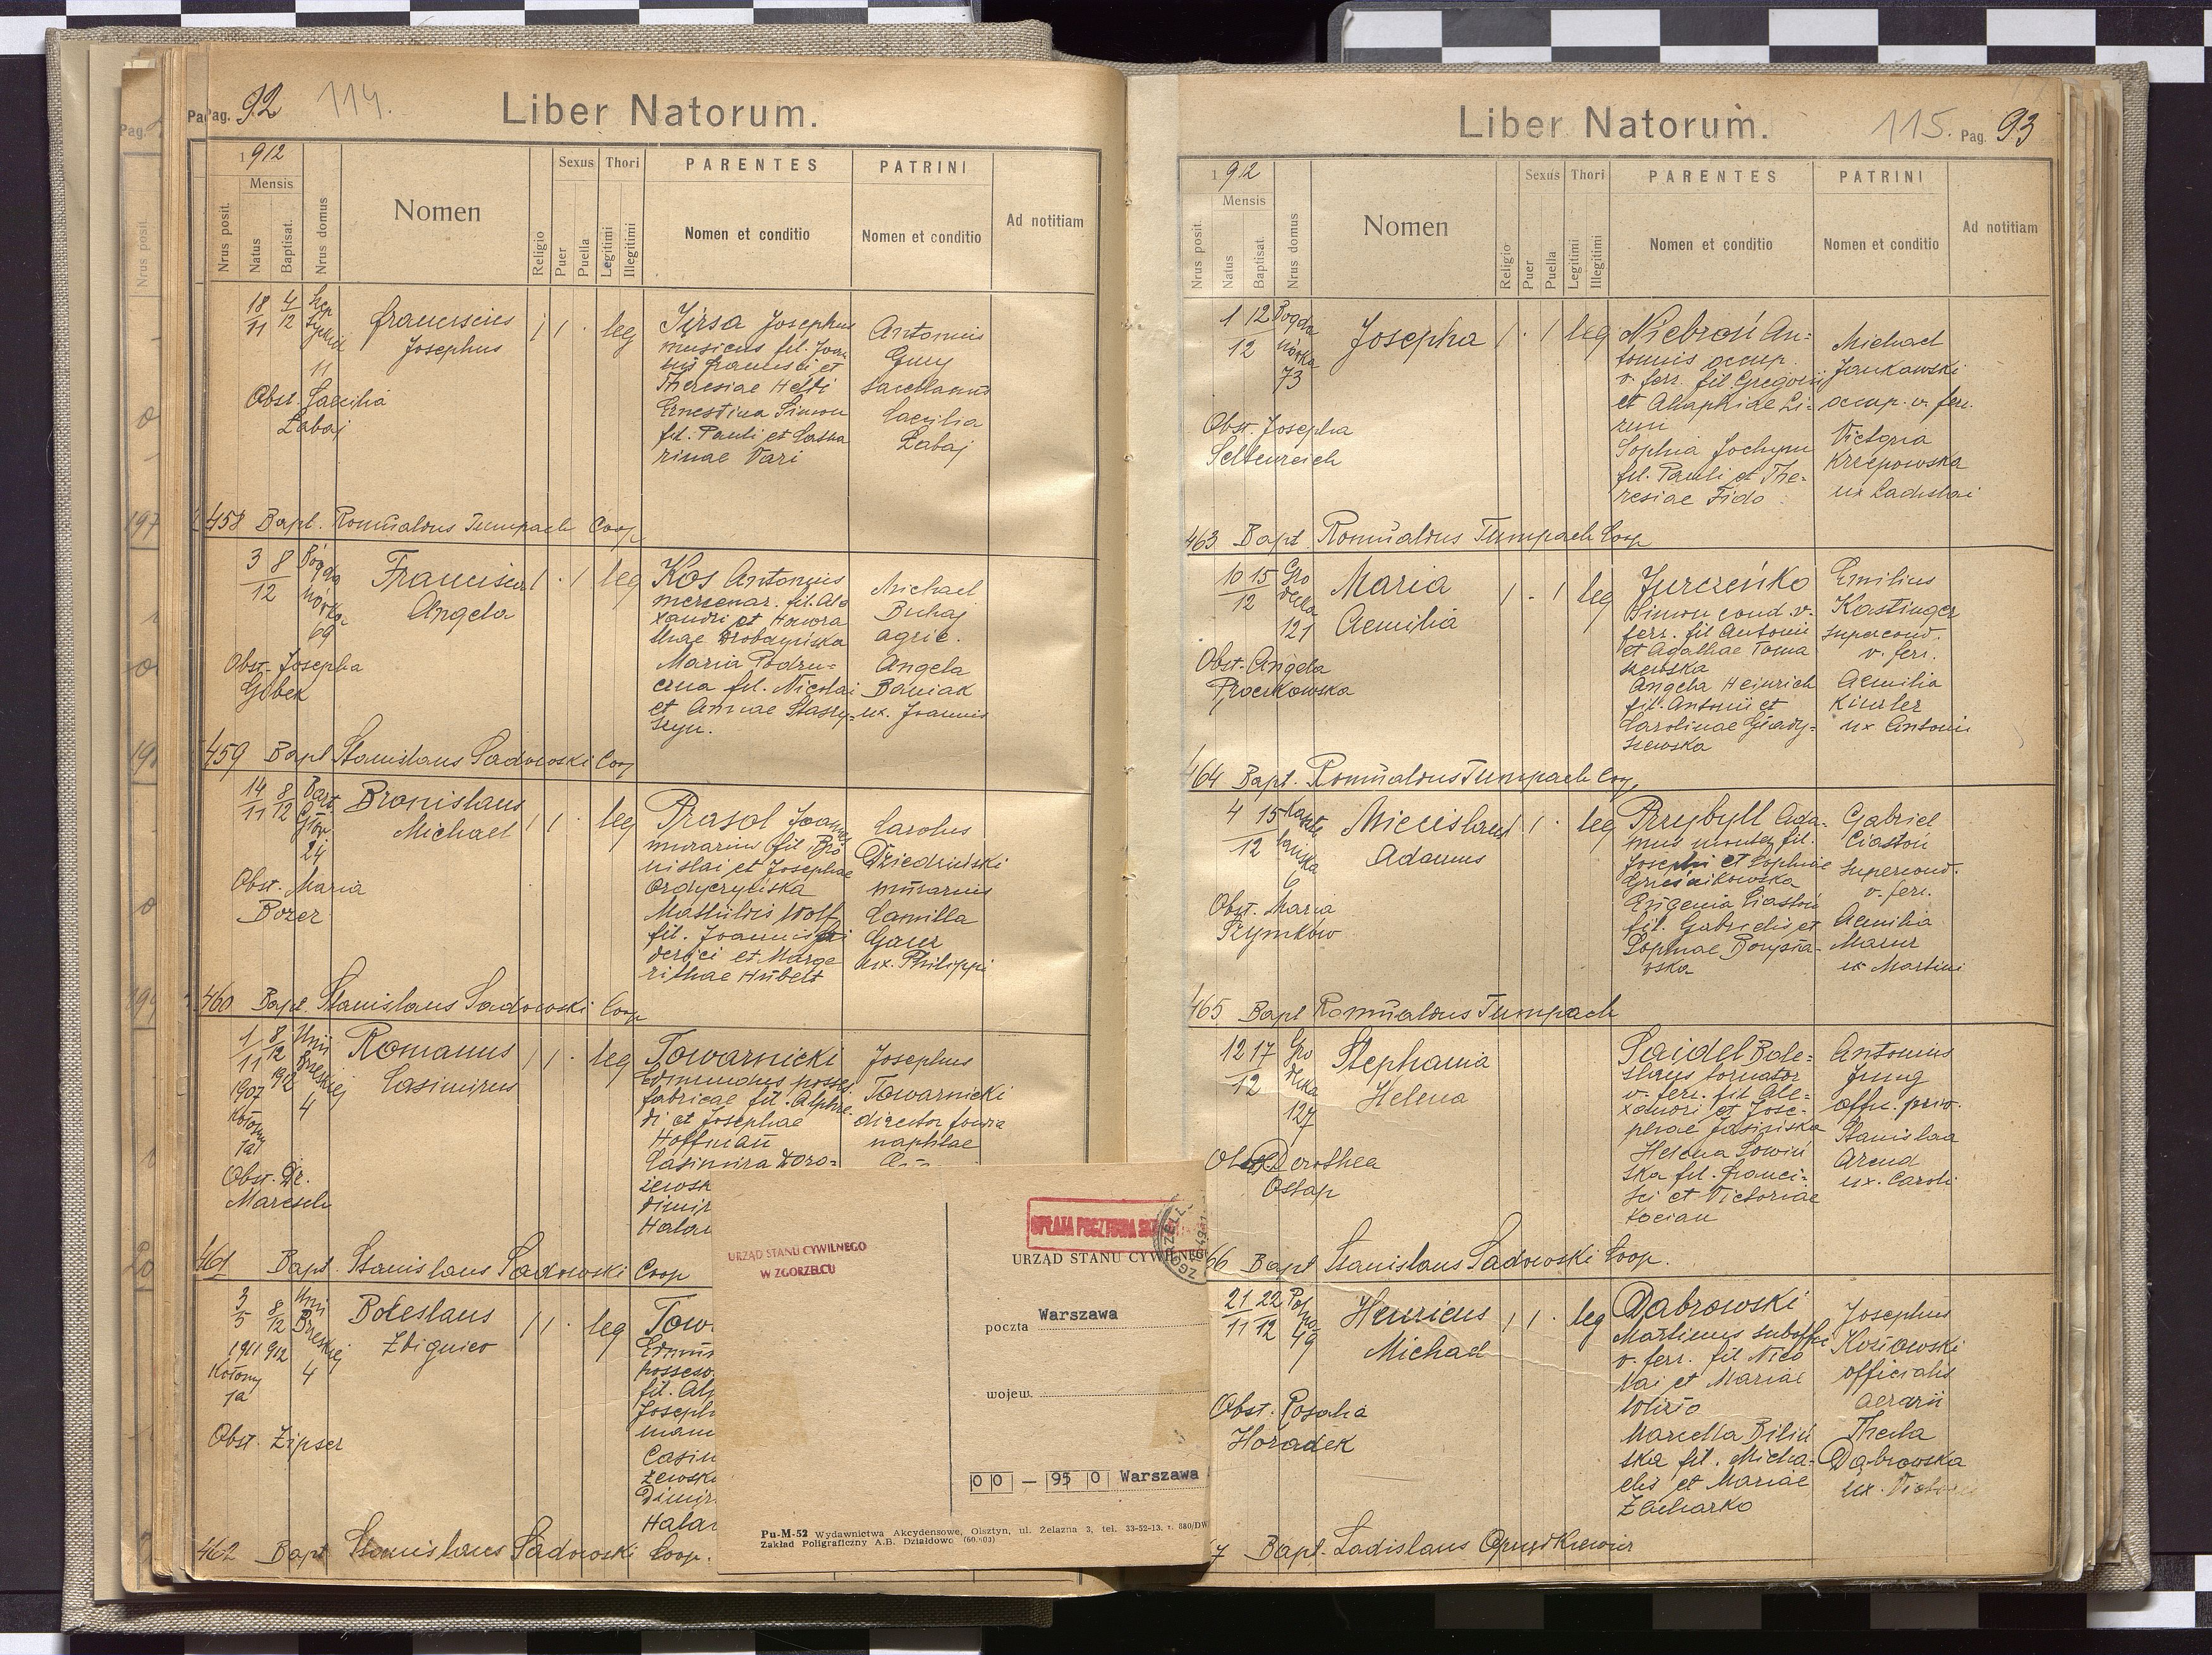 Pag. 92 114.
Liber Natorum.
1912
Mensis
Nrus posit.
Natus
Baptisat.
Nrus domus
Nomen
Religio
Sexus
Puer
Puella
Thori
Legitimi
Illegitimi
PARENTES
Nomen et conditio
PATRINI
Nomen et conditio
Ad notitiam
18/11 4/12
11
Franciscus
Josephus
1 1 · leg
Jirsa Josephus
musicus fil. Joan
nis Francisci et
Theresiae Helti
Ernestina Simon
fil. Pauli et Catha
rinae Vari
Antonius
Gury
Caecilia
Żabaj
Obst. Caecilia
Żabaj
458 Bapt. Romualdus Tumpach Coop
3 8
12
Bogda
nówka
69
Francisca
Angela
1 · 1 leg
Kos Antonius
mercenar. fil. Ale
xandri et Honora
thae
Maria Podru=
czna fil. Nicolai
et Annae Staszy=
szyn.
Michael
Buhaj
agric.
Angela
Baniak
ux. Joannis
Obst. Josepha
Gobek
459 Bapt Stanislaus Sadowski Coop
14/11 8/12
Bart.
Głow.
24
Bronislaus
Michael
1 1 · leg
Prasol Joannes
murarius fil Bro
nislai et Josephae
Ordyczyńska
Mathildis Wolf
fil. Joannis Fri
derici et Marga
rithae Hubelt
Carolus
Dziedzinski
murarius
Camilla
Gauz
ux. Philippi
Obst. Maria
Bozer
460 Bapt. Stanislaus Sadowski Coop
1/11 8/12
1907 1912
Unii
Breskiej
4
Kołomy
ja
Romanus
Casimirus
1 1 · leg
Towarnicki
Edmundus posses.
fabricae fil. Alphre
di et Josephae
Hoffman
Casimira Doro=
żewsk
dimir
Halar
Josephus
Towarnicki
director
naphtae
Obst. Dr.
Maresch
461 Bapt. Stanislaus Sadowski Coop
3/5 8/12
1911 912
Unii
Breskiej
4
Kołomy
ja
Boleslaus
Zbigniew
1 1 · leg
Tow.
Edmun
possess.
fil. Alp
Joseph
mann
Casim
żewsk
Dimir
Halar
Obst. Zipser
462 Bapt Stanislaus Sadowski Coop.
URZĄD STANU CYWILNEGO
W ZGORZELCU
OPŁATA POCZTOWA
URZĄD STANU CYWILNEGO
poczta Warszawa
wojew.
00 — 950 Warszawa
Pu-M-52 Wydawnictwa Akcydensowe, Olsztyn, ul. Żelazna 3, tel. 33-52-13. z. 880/DW
Zakład Poligraficzny A.B. Działdowo
Liber Natorum.
115. Pag. 93
1912
Mensis
Nrus posit.
Natus
Baptisat.
Nrus domus
Nomen
Religio
Sexus
Puer
Puella
Thori
Legitimi
Illegitimi
PARENTES
Nomen et conditio
PATRINI
Nomen et conditio
Ad notitiam
1 12
12
Bogda
nówka
73
Josepha
1 · 1 leg
Niebroń An=
tonius occup.
v. ferr. fil. Gregorii
et Agaphide Li=
rum
Sophia Jochym
fil. Pauli et The=
resiae Fido
Michael
Jankowski
occup. v. ferr.
Victoria
Krzepowska
ux Ladislai
Obst. Josepha
Seltenreich
463 Bapt Romualdus Tumpach Coop
10 15
12
Gro
decka
121
Maria
Aemilia
1 · 1 leg
Jurczeńko
Simon cond. v.
ferr. fil Antonii
et Agathae Toma
szewska
Angela Heinrich
fil. Antonii et
Carolinae Grady=
szewska
Emilius
Kastinger
supercond.
v. ferr.
Aemilia
Kinzler
ux Antonii
Obst. Angela
Procukowska
464 Bapt. Romualdus Tumpach Coop.
4 15
12
Kaszte
lańska
6
Miecislaus
Adamus
1 · leg
Przybyll Ada=
mus fil.
Josephi et Sophiae
Eugenia Ciastoń
fil. Gabrielis et
Sophiae Borysła=
wska
Gabriel
Ciastoń
supercond.
v. ferr.
Aemilia
Mazur
ux Martini
Obst. Maria
Szymków
465 Bapt Romualdus Tumpach
12 17
12
Gro
decka
127
Stephania
Helena
Saidel Bole=
slaus tornator
v. ferr. fil Ale=
xandri et Jose=
phae Jasińska
Helena Sowiń
ska fil. Franci=
sci et Victoriae
Kocian
Antonius
Jung
offic. priv.
Stanislaa
Arend
ux. Caroli
Obst. Dorothea
Ostap
66 Bapt Stanislaus Sadowski Coop.
21 22
11 12
49
Henricus
Michael
1 1 · leg
Dąbrowski
Martinus suboffic
v. ferr. fil Nico
lai et Mariae
Marcella Biliń
ska fil. Micha=
elis et Mariae
Zacharko
Josephus
Kosiowski
officialis
aerarii
Thecla
Dąbrowska
ux. Victoris
Obst. Rosalia
Horadek
7 Bapt. Ladislaus